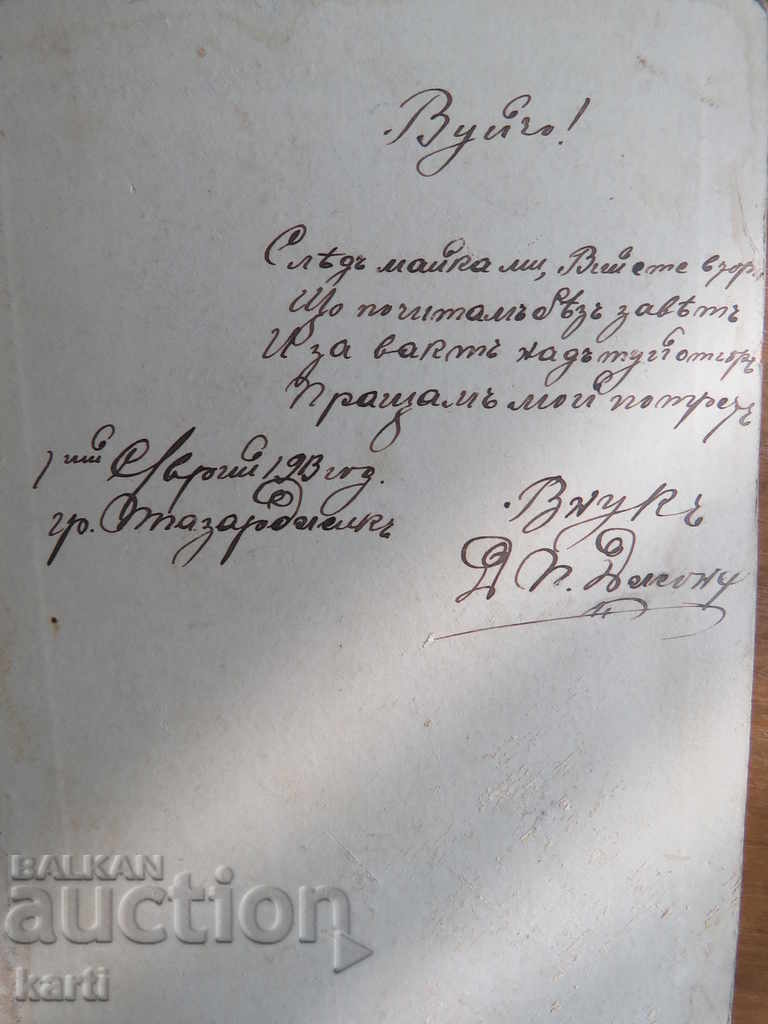 Вуйчо!
Слѣдъ майка ми, Вий сте взор
Що почитамъ безъ завѣтъ
И за вактъ надъ туй отгоръ
Пращамъ мой потретъ
1ый 1913 год.
гр. Т.Пазарджикъ
Внукъ
Д П.
BALKAN
auction
karti